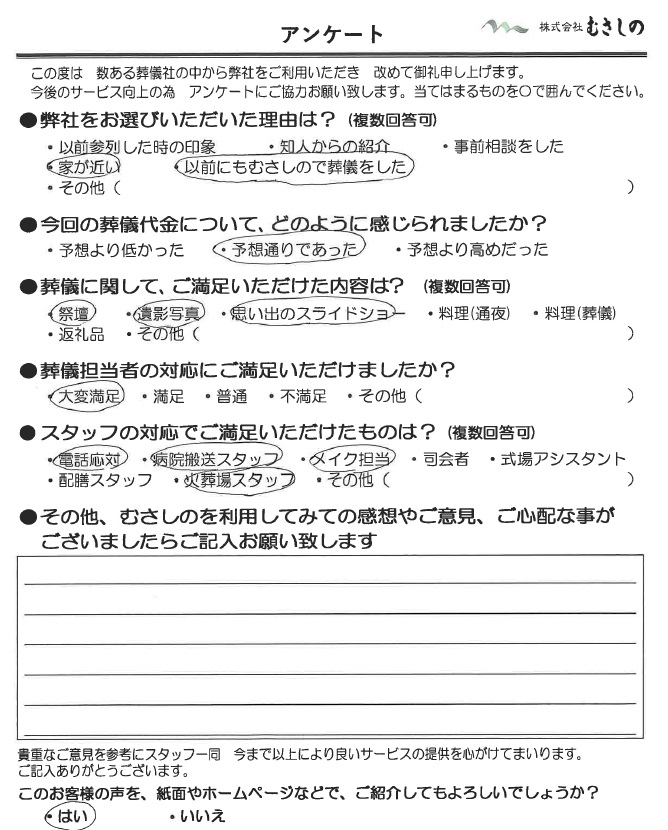 アンケート
株式会社 むさしの
この度は 数ある葬儀社の中から弊社をご利用いただき 改めて御礼申し上げます。
今後のサービス向上の為 アンケートにご協力お願い致します。当てはまるものを〇で囲んでください。
●弊社をお選びいただいた理由は?(複数回答可)
・以前参列した時の印象 ・知人からの紹介 ・事前相談をした
・家が近い ・以前にもむさしので葬儀をした
・その他( )
●今回の葬儀代金について、どのように感じられましたか?
・予想より低かった ・予想通りであった ・予想より高めだった
●葬儀に関して、ご満足いただけた内容は?(複数回答可)
・祭壇 ・遺影写真 ・思い出のスライドショー ・料理(通夜) ・料理(葬儀)
・返礼品 ・その他( )
●葬儀担当者の対応にご満足いただけましたか?
・大変満足 ・満足 ・普通 ・不満足 ・その他( )
●スタッフの対応でご満足いただけたものは?(複数回答可)
・電話応対 ・病院搬送スタッフ ・メイク担当 ・司会者 ・式場アシスタント
・配膳スタッフ ・火葬場スタッフ ・その他( )
●その他、むさしのを利用してみての感想やご意見、ご心配な事が
ございましたらご記入お願い致します
貴重なご意見を参考にスタッフ一同 今まで以上により良いサービスの提供を心がけてまいります。
ご記入ありがとうございます。
このお客様の声を、紙面やホームページなどで、ご紹介してもよろしいでしょうか?
・はい ・いいえ